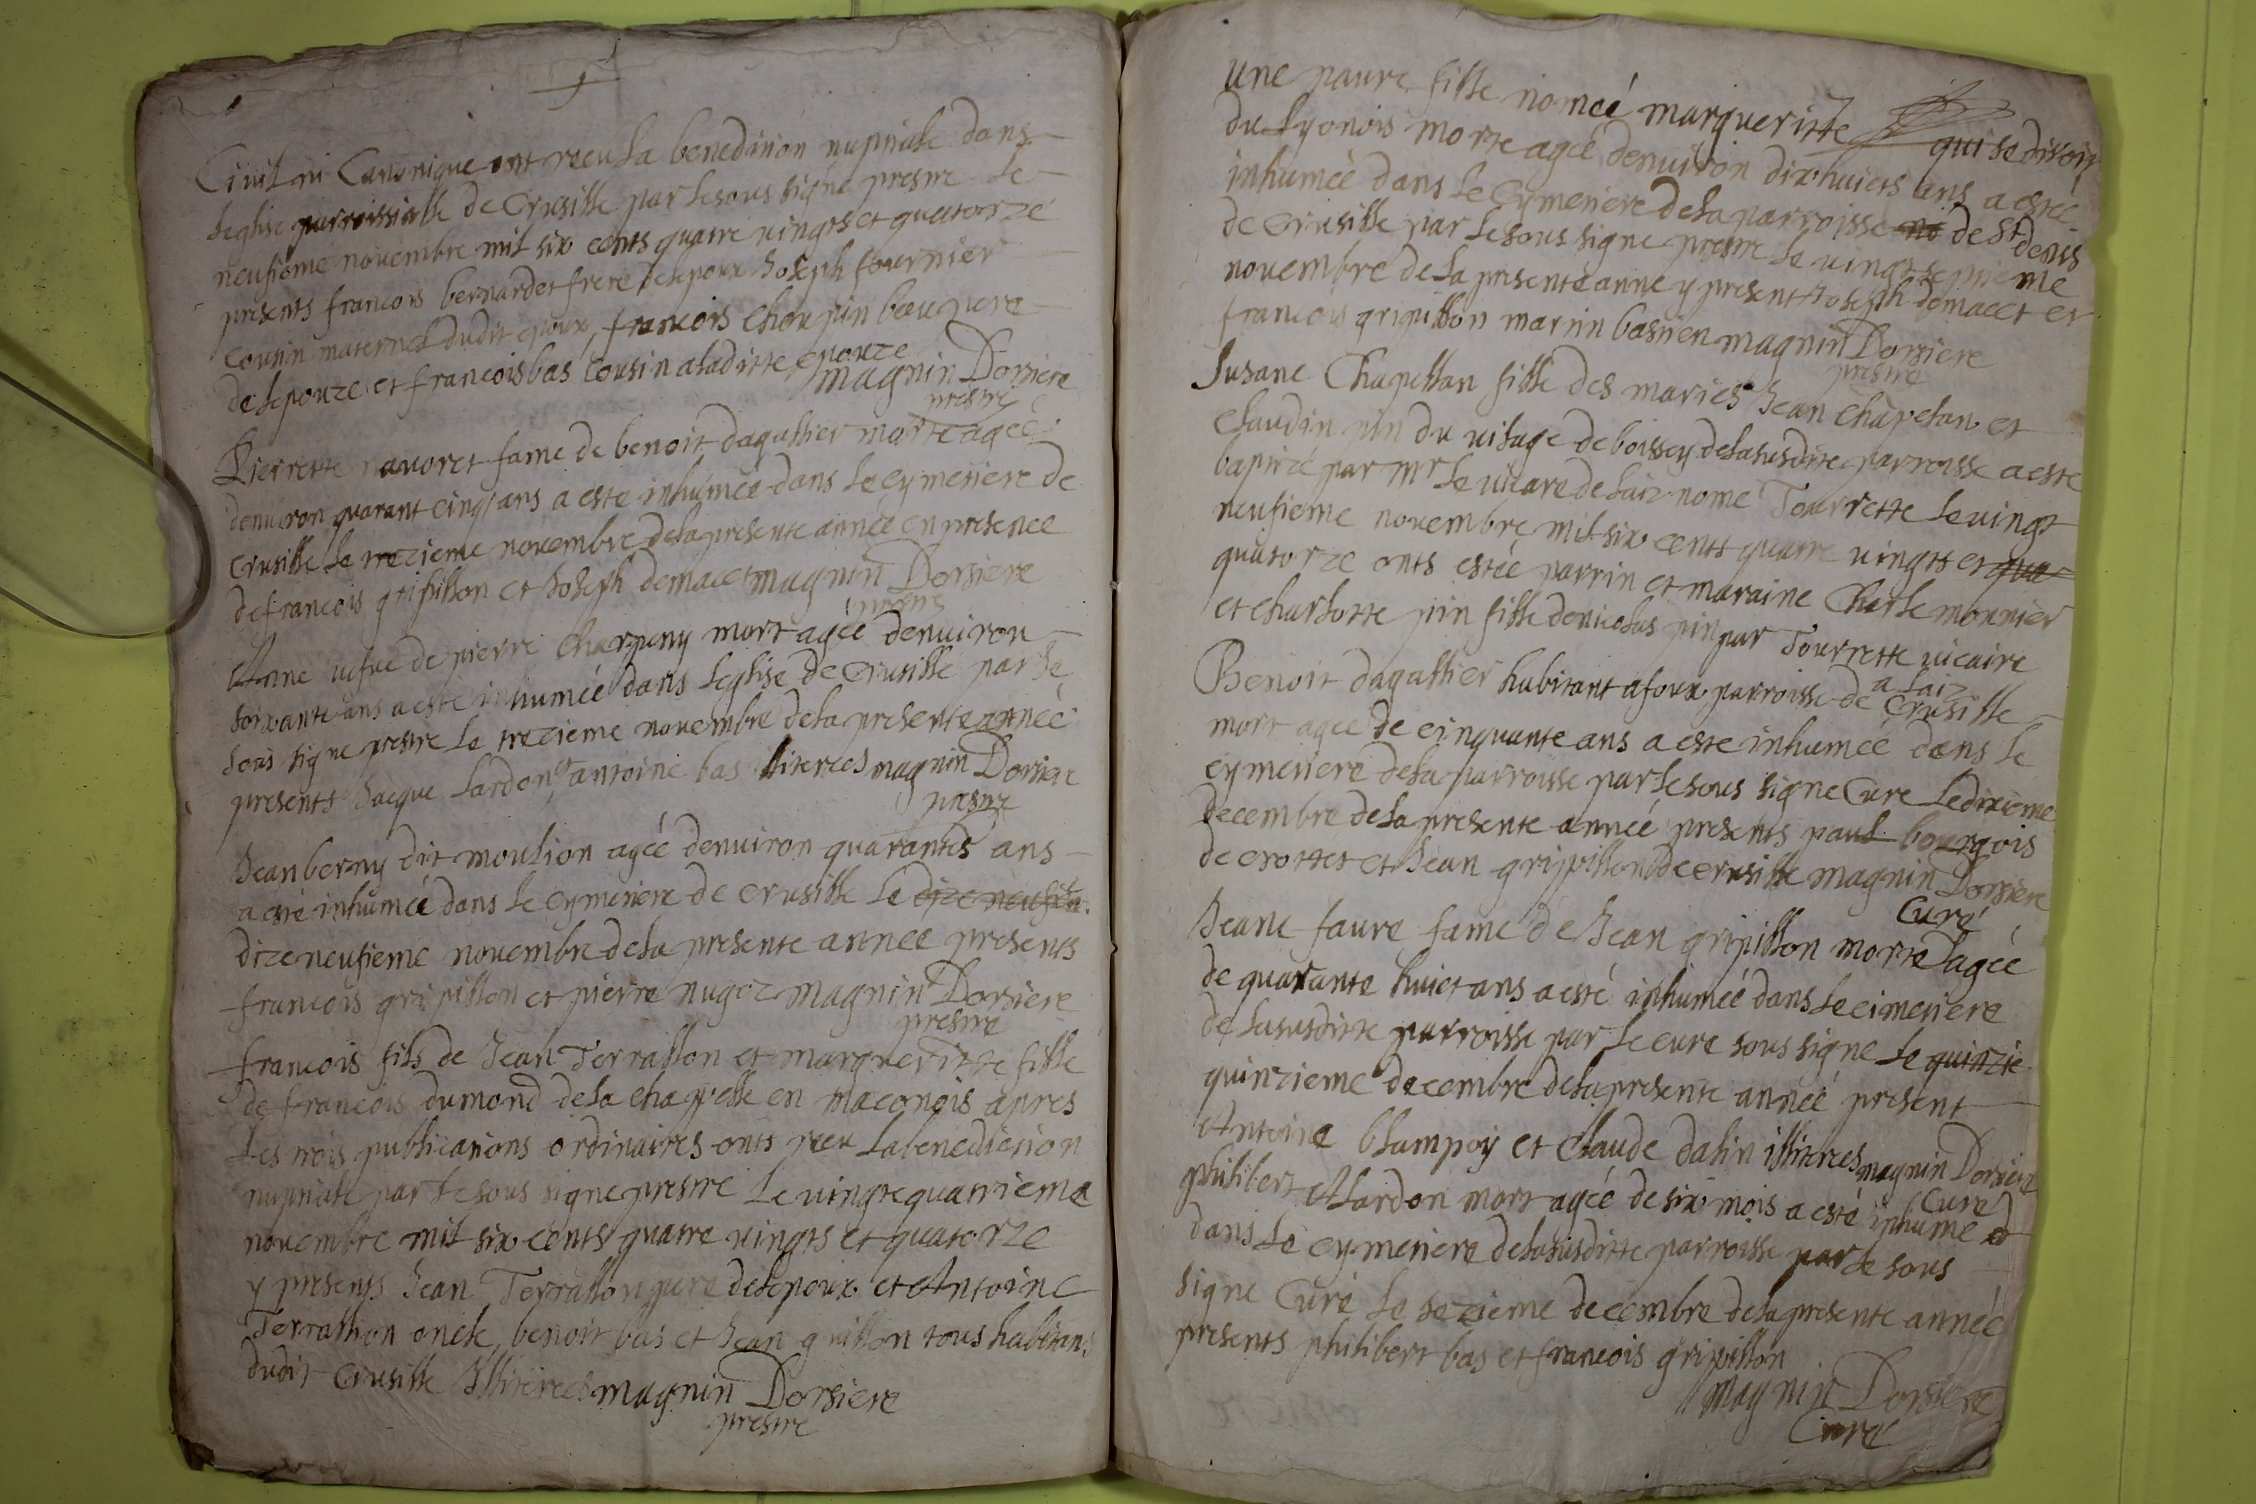 Civil ni Canonique ont receu la benediction nuptiale dans
leglise parroissialle de Crusille par le sous signé prestre le
neufieme novembre mil six cents quatre vingts et quatorze
presents francois bernardet frere delepoux Joseph fournier
cousin maternel dudit epoux, francois Choupin beau pere
de lepouze et francois bas cousin a laditte epouze
magnin Dorsiere
prestre
Pierrette avoret fame de benoit dagallier morte agée
denviron quarant cinq ans a este inhumée dans le cymetiere de
Crusille le trezieme novembre de la presente année en presence
de francois gripillon et Joseph demacet magnin Dorsiere
prestre
Anne vefve de pierre Charpeny mort agée denviron
soixante ans a este inhumée dans leglise de Crusille par le
sous signe prestre le trezieme novembre de la presente année
presents Jacque Lardon, et antoine bas illiterees magnin Dorsiere
prestre
Jean berny dit moulion agée denviron quarantes ans
a esté inhumée dans le cymetiere de crusille le dize neufie
dizeneufieme novembre de la presente année presents
francois gripillon et pierre nugoz magnin Dorsiere
prestre
francois fils de Jean Terrallon et margueritte fille
de francois dumond de la chappelle en maconois apres
les trois publications ordinaires onts receu la benediction
nuptiale par le sous signe prestre le vingtequatrieme
novembre mil six cents quatre vingts et quatorze
y presents Jean Terrallon pere delepoux et Antoine
Terrallion oncle, benoit bas et Jean guillon tous habitans
dudit Crusille Illiterees magnin Dorsiere
prestre
une pauvre fille nomeé margueritte qui se disoit
du Lyonois morte agée denviron dixhuicts ans a estée
inhumée dans le Cymetiere de la parroisse no de St denis
de Crusille par le sous signe prestre le vingtseptieme
novembre de la presente anne y present Joseph demacet et
francois gripillon martin bastien magnin Dorsiere
prestre
Susane Chapellan fille des mariés Jean Chapelan et
Claudin pin du vilage de boissey de la susditte parroisse a este
baptizé par Mr le vicare de laiz nomé Tourrette le vingt
neufieme novembre mil six cents quatre vingts et qua
quatorze onts estée parrin et maraine Charle monnier
et Charlotte pin fille de nicolas pin par Tourrette vicaire
a laiz
Benoit dagallier habitant a foux parroisse de Crusille
mort agée de cinquante ans a este inhumée dans le
cymetiere de la parroisse par le sous signe Cure le dixieme
decembre de la presente année presents paul bourgois
de crottet et Jean grippillon de crusille magnin Dorsiere
Curé
Jeane faure fame de Jean gripillon morte agée
de quarante huict ans a esté inhumée dans le cimetiere
de la susditte parroisse par le cure sous signe le quinzie
quinzieme decembre de la presente année present
Antoine blampoy et Claude dalin illiterees magnin Dorsiere
Curé
philibert Alardon mort agée de six mois a esté inhume
dans le cymetiere de la susditte parroisse par le sous
signe Curé le sezieme decembre de la presente année
presents philibert bas et francois gripillon
magnin Dorsiere
Curé